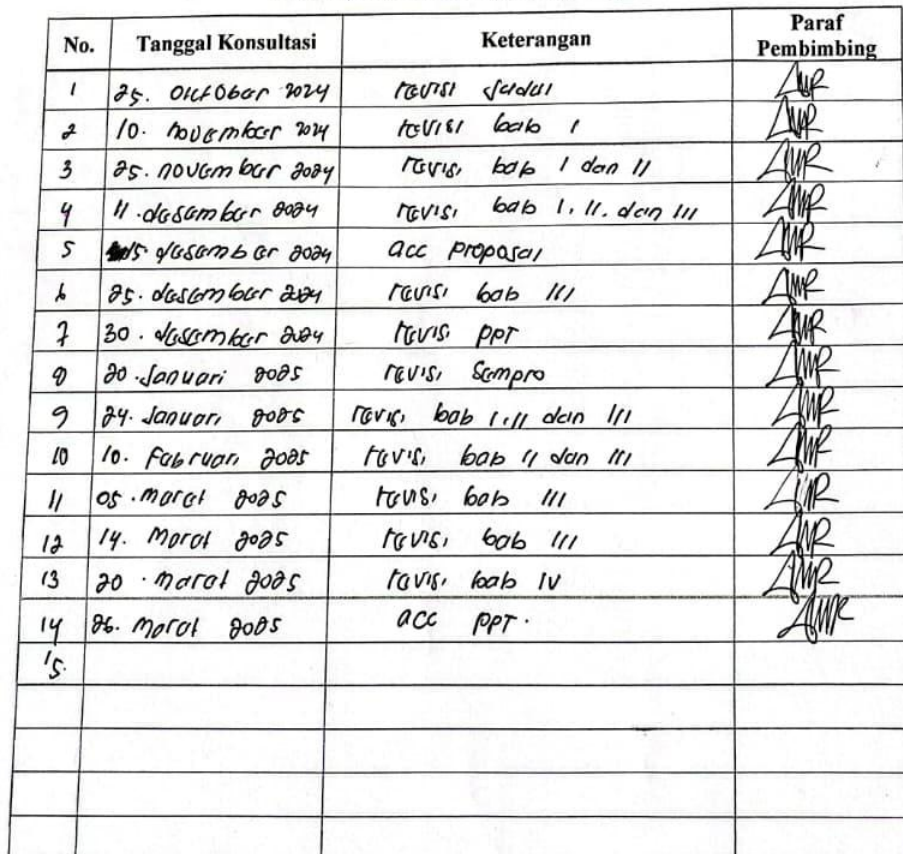 No. Tanggal Konsultasi Keterangan Paraf Pembimbing
1 25. Oktober 2024 revisi Judul
2 10. november 2024 revisi bab I
3 25. november 2024 revisi bab I dan II
4 11. desember 2024 revisi bab I, II, dan III
5 15 desember 2024 acc proposal
6 25. desember 2024 revisi bab III
7 30. desember 2024 revisi PPT
8 20. Januari 2025 revisi Sempro
9 24. Januari 2025 revisi bab I, II dan III
10 10. Februari 2025 revisi bab II dan III
11 05. maret 2025 revisi bab III
12 14. Maret 2025 revisi bab III
13 20. maret 2025 revisi bab IV
14 26. maret 2025 acc PPT.
15.